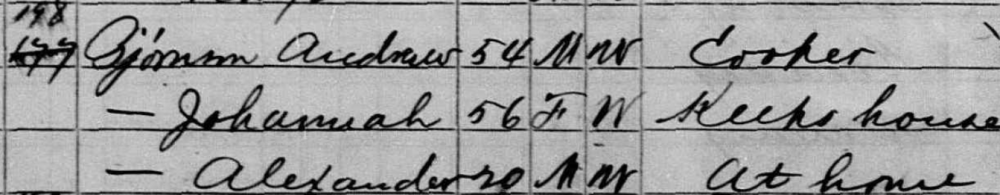 198
177 Bjömm Andrew 54 M W Cooper
— Johannah 56 F W Keeps house
— Alexander 20 M W At home